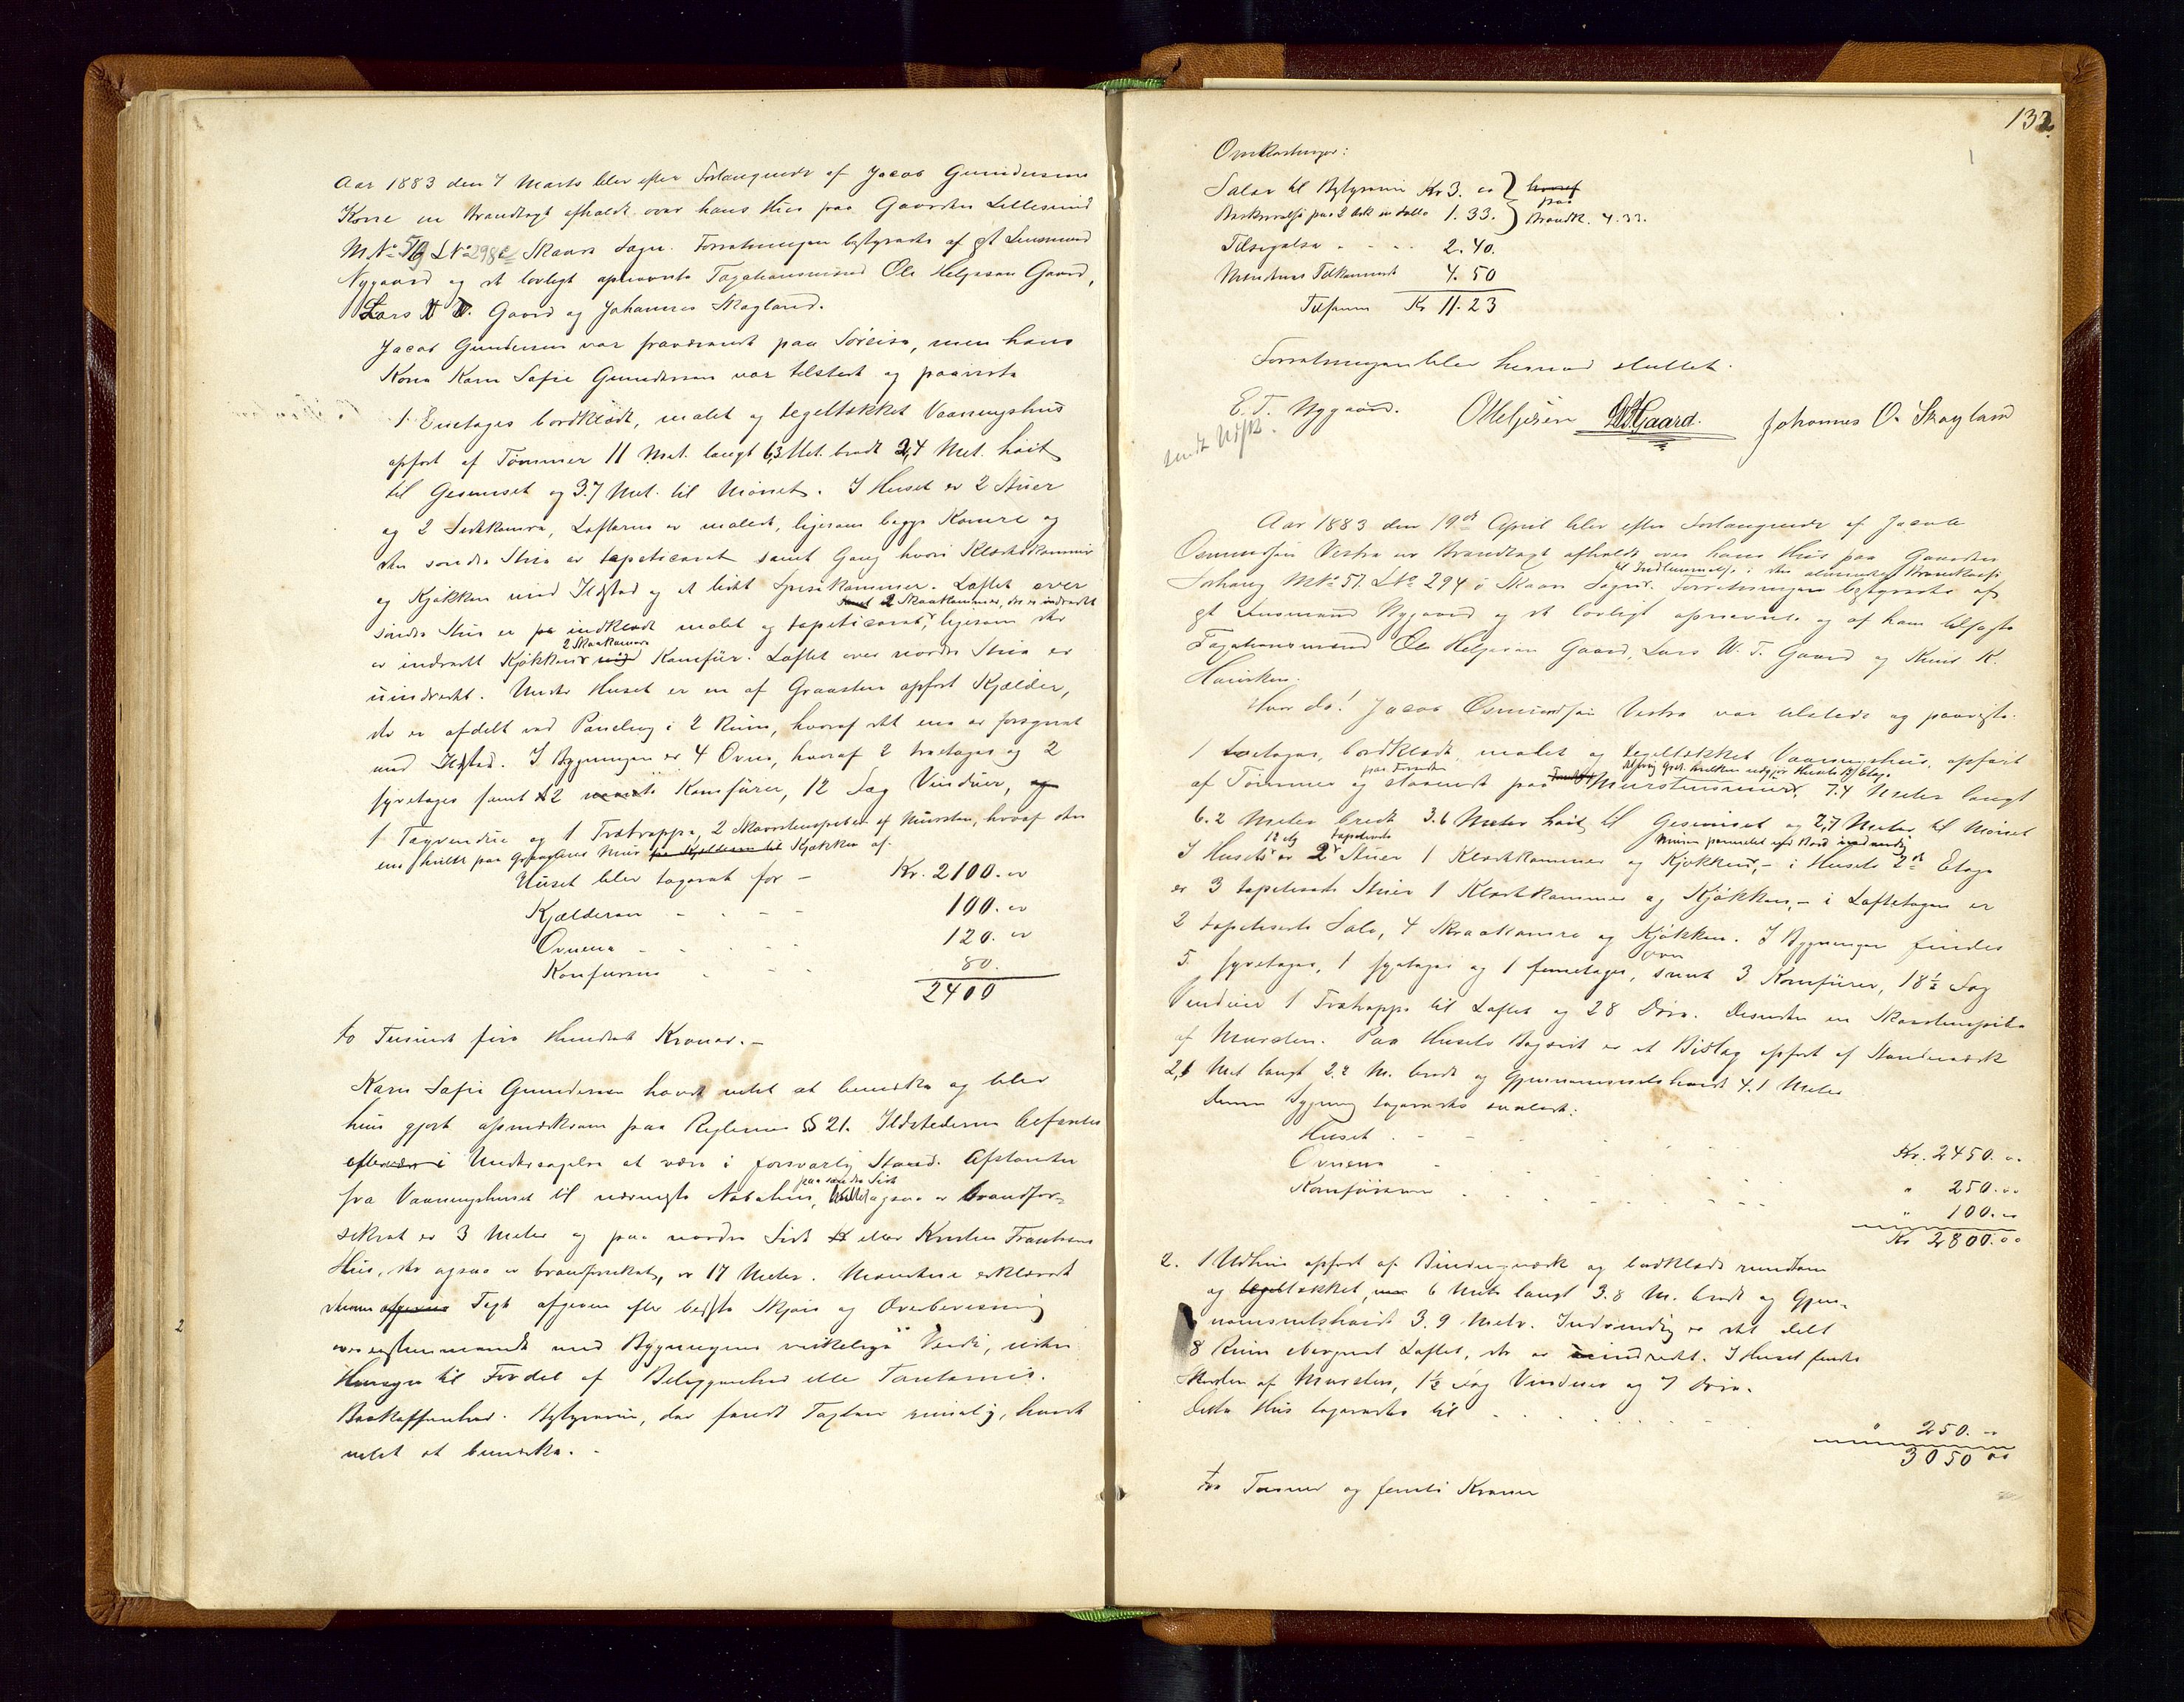 Aar 1883 den 7 Marts blev efter Forlangende af Jacob Gundersen
Korre en Brandtagt afholdt over hans Hus paa Gaarden Lillesund
M.No 5/9 LNo 298c Skaare Sogn. Forretningen bestyredes af gt Lensmand
Nygaard og de lovligt opnævnte Taxationsmænd Ole Helgesen Gaard,
Lars W. T. Gaard og Johannes Skogland.
Jacob Gundersen var fraværende paa Søreise, men hans
Kone Karn Sofie Gundersen var tilstede og paaviste
1 Enetages bordklædt, malet og tegeltækket Vaaningshus
opført af Tømmer 11 Met. langt 6,3 Met. bredt 3,4 Met. høit
til Gesimset og 3.7 Met. til Mønet. I Huset er 2 Stuer
og 2 Sidekamre, Lofterne er malede, ligesom begge Kamre og
den søndre Stue er tapeticeret samt Gang hvori Klædekammer
og Kjøkken med Ildsted og et lidet Spisekammer. Loftet over
samt 2 Skraakammer, der er indredet
søndre Stue er indklædt malet og tapeticeret, ligesom der
2 Skraakamre
er indredt Kjøkken med Komfür. Loftet over nordre Stue er
uindredet. Under Huset er en af Graasten opført Kjælder,
der er afdelt ved Paneling i 2 Rum, hvoraf det ene er forsynet
med Ildsted. I Bygningen er 4 Ovne, hvoraf 2 troetages og 2
fyretages samt 2 Komfürer, 12 Fag Vinduer, og
1 Tagvindue og 1 Trætrappe, 2 Skorstenspiber af Mursten, hvoraf den
ene hviler paa Kjøkken af.
Huset blev taxeret for - Kr. 2100. "
Kjælderen - - - 100. "
Ovnene - - - 120. "
Komfurene - - - 80.
2400
to Tusinde fire Hundrede Kroner. -
Karn Sofie Gundersen havde intet at bemærke og blev
hun gjort opmærksom paa Reglernes § 21. Ildstederne befandtes
efter Undersøgelse at være i forsvarlig Stand. Afstanden
paa søndre Side
fra Vaaningshuset til nærmeste Nabohus, hvilket ogsaa er brandfor-
sikret er 3 Meter og paa nordre Side til Frantsens
Hus, der ogsaa er brandforsikret, er 17 Meter. Mændene erklærede
denne Taxt afgiven efter bedste Skjøn og Overbevisning
overensstemmende med Bygningens virkelige Værdi, uden
Hensyn til Fordel af Beliggenhed eller Tomtens
Beskaffenhed. Bestyreren, der fandt Taxten rimelig, havde
intet at bemærke. -
132.
Omkostninger:
Salær til Bestyreren Kr 3. " } hvoraf
paa
Beskrivelse paa 2 Ark in duplo 1. 33. } Brandk. 4.33.
Tilsigelse - - - 2.40.
Mændenes Tilkommende 4.50
Tilsammen Kr 11.23
Forretningen blev hermed sluttet.
E. T. Nygaard. O Helgesen LWTGaard. Johannes O. Skogland
sendt Udsk.
Aar 1883 den 19de April blev efter Forlangende af Jacob
Osmundsen Vestre en Brandtagt afholdt over hans Hus paa Gaarden
til Indlemmelse i den almindelige Brandkasse
Sørhaug MNo 57 LNo 294 i Skaare Sogn. Forretningen bestyredes af
gt Lensmand Nygaard og de lovligt opnævnte og af ham tilsagte
Taxationsmænd Ole Helgesen Gaard, Lars W. T. Gaard og Knud K.
Hauske.
Hvor da! Jacob Osmundsen Vestre var tilstede og paaviste:
1 toetages, bordklædt, malet og tegeltækket Vaaningshus, opført
paa Forsiden
af Tømmer og staaende paa Murstensmur, 7.4 Meter langt
6.2 Meter bredt 3.6 Meter høit til Gesimset og 7,7 Meter til Mønet
I Husets 1ste Etg er 2 tapeserede Stuer 1 Klædekammer og Kjøkken, - i Husets 2den Etage
er 3 tapeserede Stuer 1 Klædekammer og Kjøkken, - i Loftetagen er
2 tapeserede Sale, 4 Skraakamre og Kjøkken. I Bygningen findes
Ovn
5 fyretages, 1 og 1 femetages, samt 3 Komfürer, 18½ Fag
Vinduer 1 Trætrappe til Loftet og 28 Døre. Desuden en Skorstenspibe
af Mursten. Paa Husets Bagside er et Bislag opført af Standværk
2,6 Met langt 2.2 M. bredt og Gjennemsnitshøide 4.1 Meter
Denne Bygning taxeredes saaledes:
Huset - - Kr. 2450. "
Ovnene - - " 250. "
Komfürerne - - " 100. "
Kr 2800. "
2. 1 Udhus opført af Bindingsværk og bordklædt rundtom
og tegeltækket, 6 Meter langt 3.8 M. bredt og Gjen-
nemsnitshøide 3.9 Meter. Indvendig er det delt
8 Rum iberegnet Loftet, der er uindredt. I Huset findes
Skorsten af Mursten, 1½ Fag Vinduer og 7 Døre.
Dette Hus taxeredes til - - " 250. "
3050 "
tre Tusinde og femti Kroner